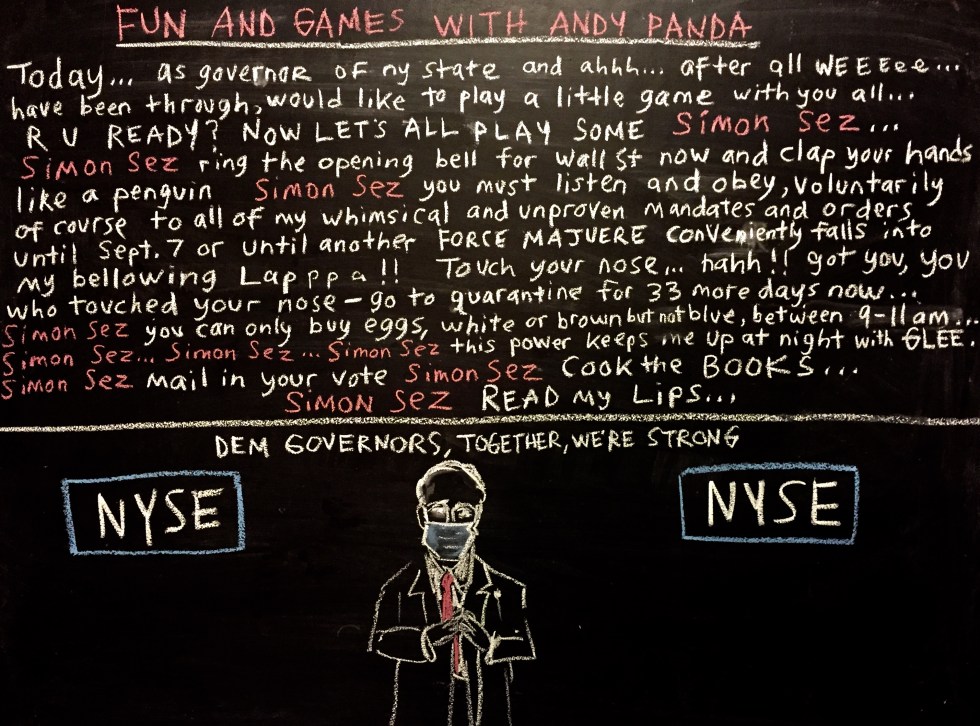 FUN AND GAMES WITH ANDY PANDA
Today... as governor of ny state and ahhh... after all WEEEee...
have been through, would like to play a little game with you all...
R U READY? NOW LET'S ALL PLAY SOME SIMON SEZ...
SIMON SEZ ring the opening bell for Wall St now and clap your hands
like a penguin SIMON SEZ you must listen and obey, voluntarily
of course to all of my whimsical and unproven mandates and orders
until Sept. 7 or until another FORCE MAJUERE conveniently falls into
my bellowing Lapppa!! Touch your nose... hahh!! got you, you
who touched your nose - go to quarantine for 33 more days now...
Simon Sez you can only buy eggs, white or brown but not blue, between 9-11 am...
Simon Sez... Simon Sez... Simon Sez this power keeps me up at night with GLEE.
Simon Sez mail in your vote Simon Sez Cook the BOOKS...
SIMON SEZ READ my Lips...
DEM GOVERNORS, TOGETHER, WE'RE STRONG
NYSE NYSE